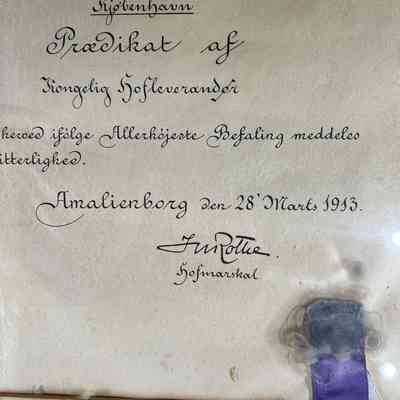 Kjøbenhavn
Prædikat af
Kongelig Hofleverandør
herved ifølge Allerhøjeste Befaling meddeles
itterlighed.
Amalienborg den 28' Marts 1913.
Hofmarskal